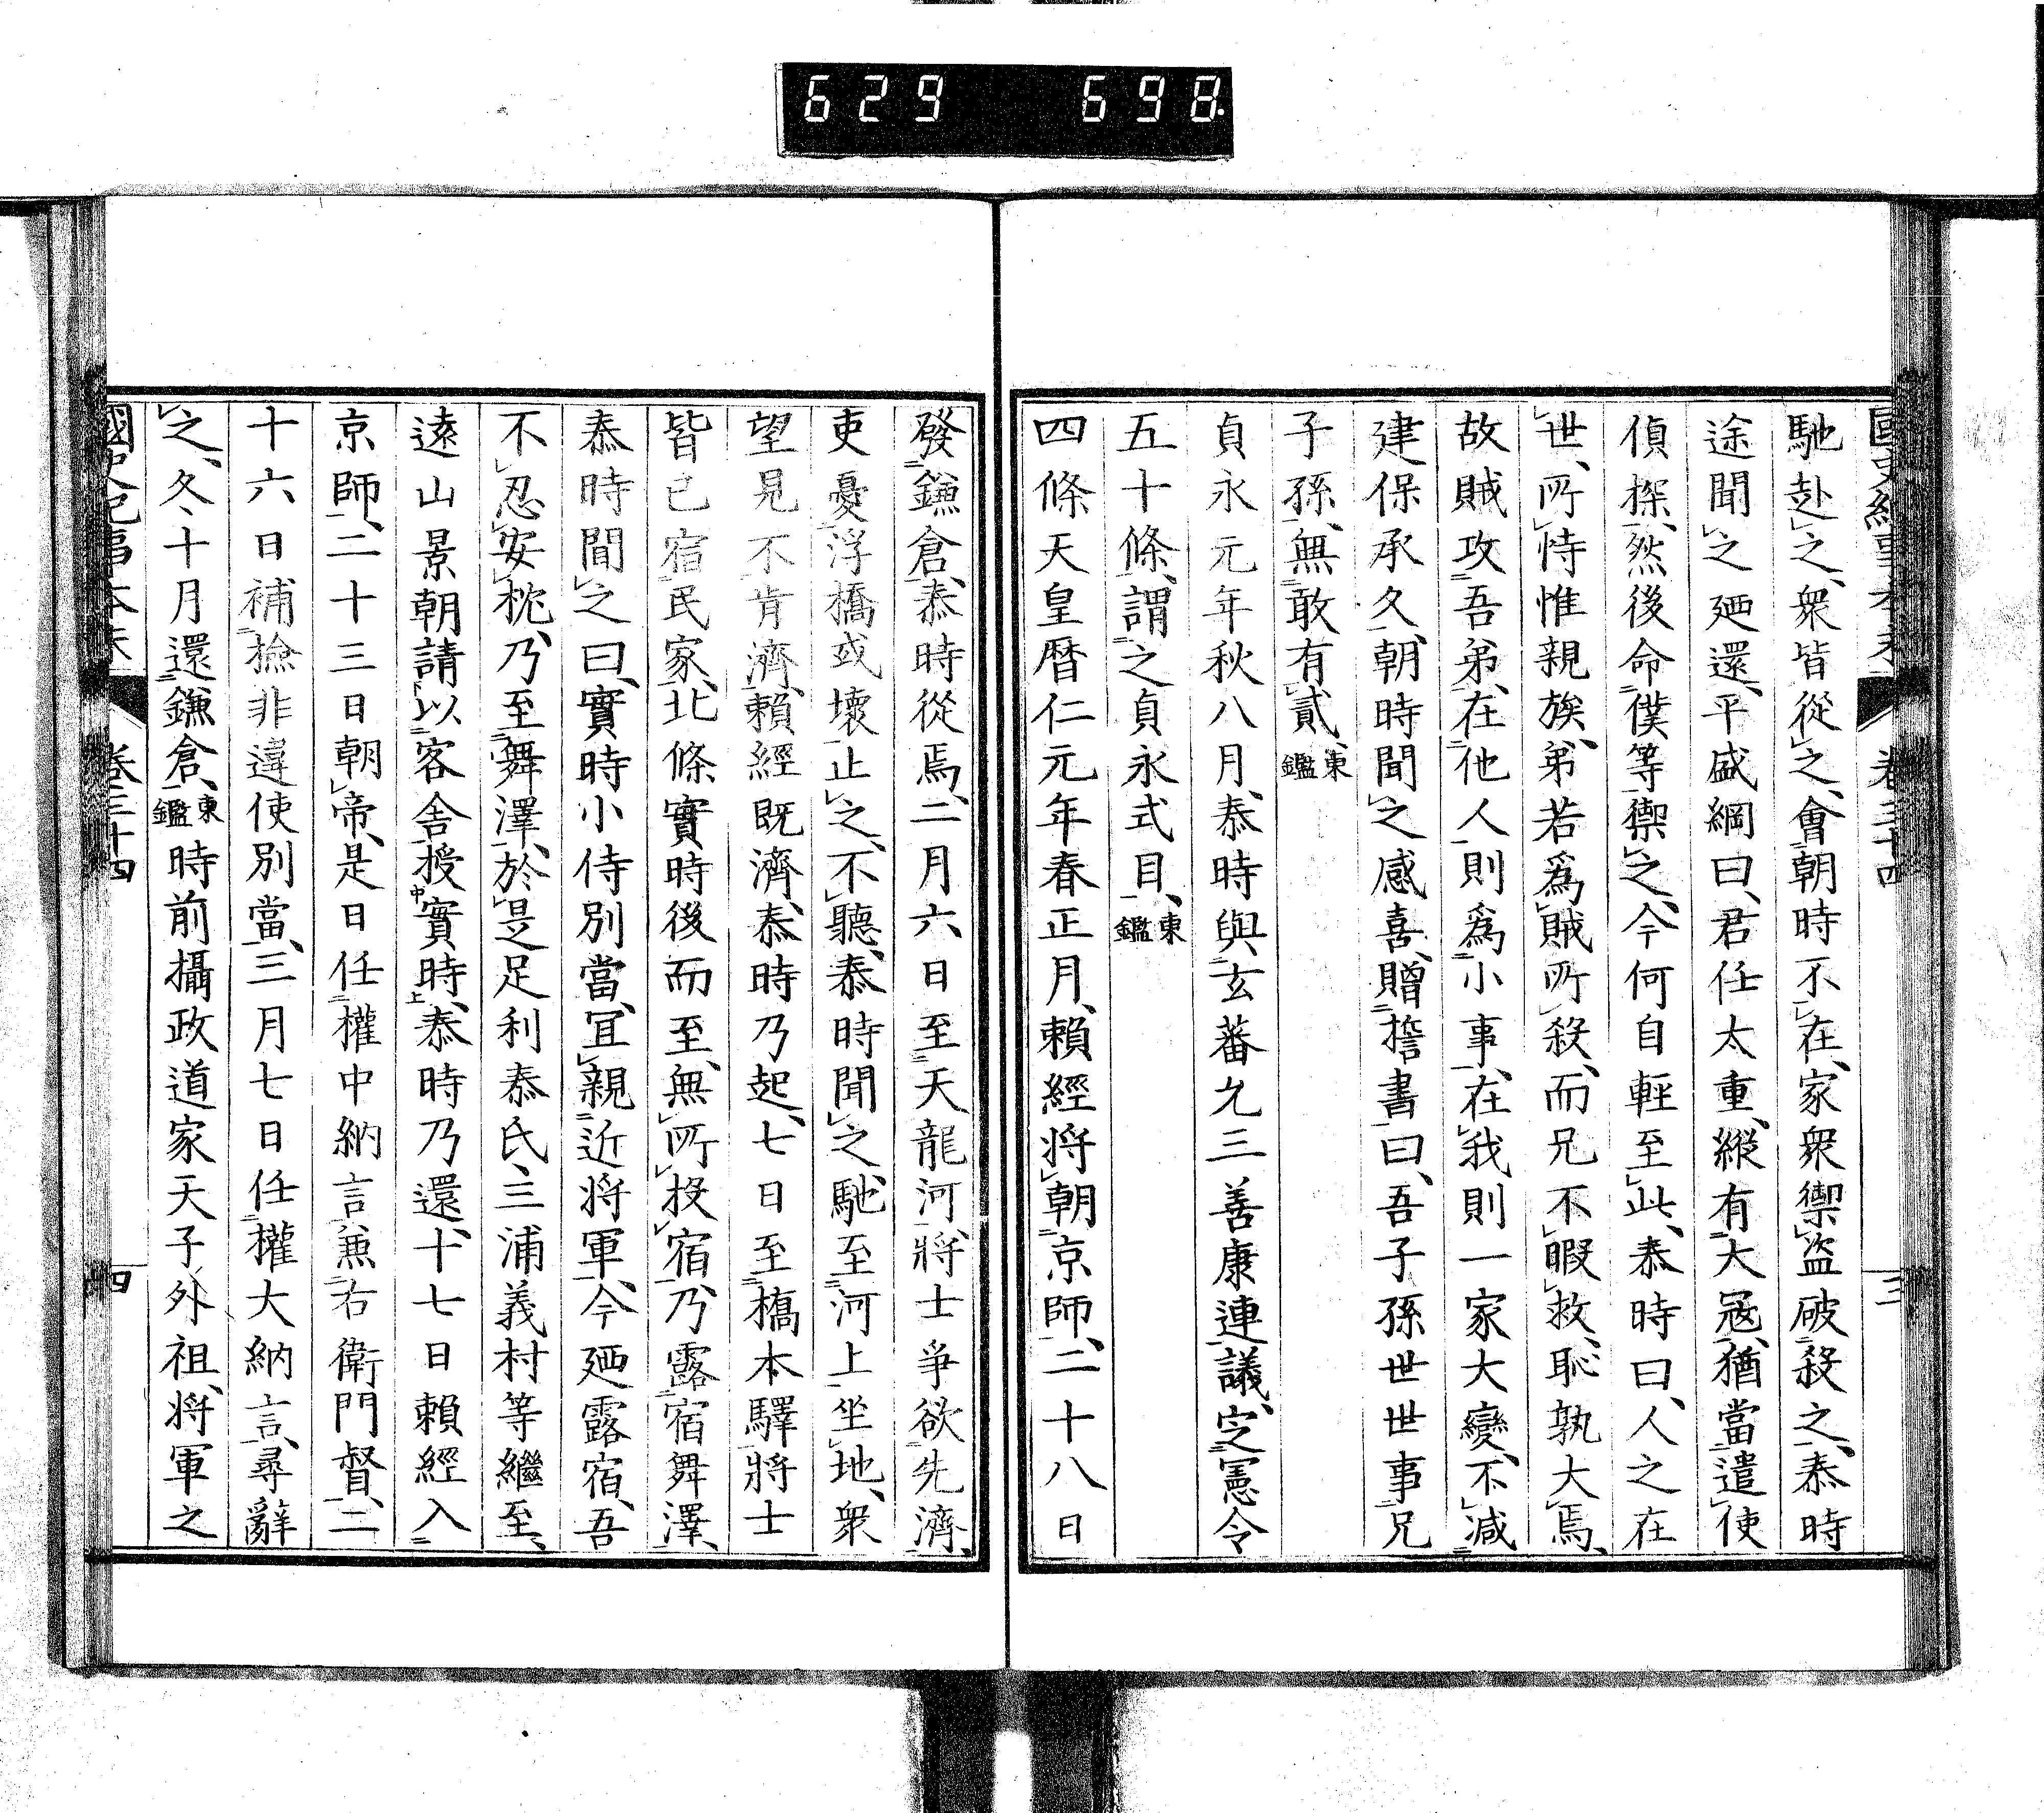 629 698.
國史紀事本末 卷三十四 三
馳赴之、衆皆從之、會朝時不在、家衆禦盜破殺之、泰時
途聞之廼還、平盛綱曰、君任太重、縱有大冦、猶當遣使
偵探、然後命僕等禦之、今何自輕至此、泰時曰、人之在
世、所恃惟親族、弟若爲賊所殺、而兄不暇救、恥孰大焉、
故賊攻吾弟、在他人則爲小事、在我則一家大變、不減
建保承久、朝時聞之感喜、贈誓書曰、吾子孫世世事兄
子孫、無敢有貳、東鑑
貞永元年秋八月、泰時與玄蕃允三善康連議、定憲令
五十條、謂之貞永式目、東鑑
四條天皇暦仁元年春正月、賴經將朝京師、二十八日
發鎌倉、泰時從焉、二月六日至天龍河、將士爭欲先濟、
吏憂浮橋或壞止之、不聽、泰時聞之、馳至河上坐地、衆
望見不肯濟、賴經既濟、泰時乃起、七日至橋本驛、將士
皆已宿民家、北條實時後而至、無所投宿、乃露宿舞澤、
泰時聞之曰、實時小侍別當、宜親近將軍、今廼露宿、吾
不忍安枕、乃至舞澤、於是足利泰氏、三浦義村等繼至、
遠山景朝請以客舎授實時、泰時乃還、十七日賴經入
京師、二十三日朝帝、是日任權中納言兼右衛門督、二
十六日補撿非違使別當、三月七日任權大納言、尋辭
之、冬、十月還鎌倉、東鑑時前攝政道家天子外祖、將軍之
國史紀事本末 卷三十四 四